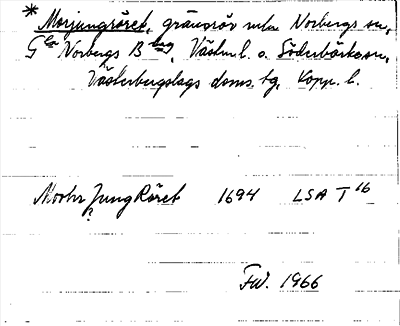 * Morjungröret, gränsrör mlm Norbergs sn,
Gla Norbergs Blag, Västm. l. o. Söderbärke sn,
Västerbergslags doms. tg, Kopp. l.
Moohr Jung Röret 1694 LSA T 16
FW. 1966